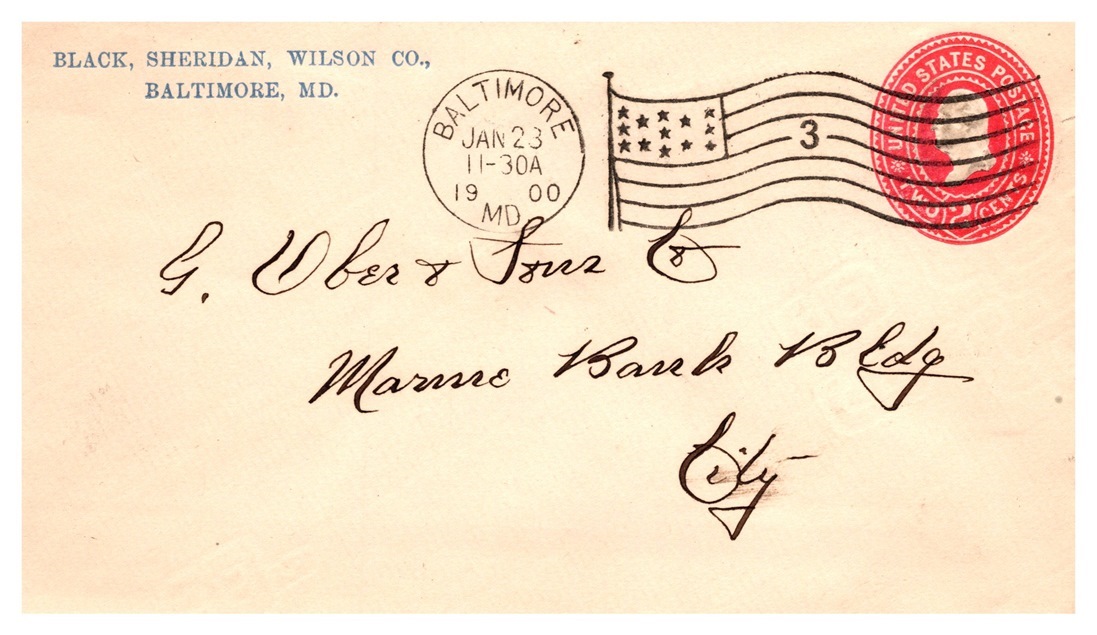 BLACK, SHERIDAN, WILSON CO.,
BALTIMORE, MD.
BALTIMORE
JAN 23
11-30A
19 00
MD.
3
UNITED STATES POSTAGE
TWO 2 CENTS
G. Ober & Sons Co
Marine Bank Bldg
City